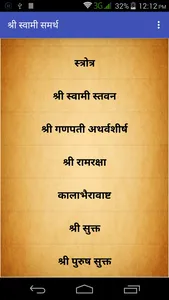 32% 12:12 PM
श्री स्वामी समर्थ
स्त्रोत्र
श्री स्वामी स्तवन
श्री गणपती अथर्वशीर्ष
श्री रामरक्षा
कालाभैरावाष्ट
श्री सुक्त
श्री पुरुष सुक्त